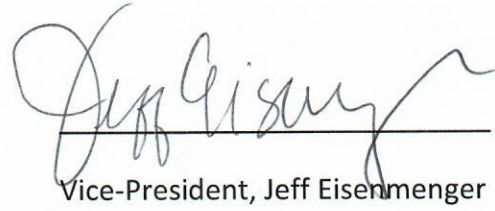 Jeff Eisenmenger
Vice-President, Jeff Eisenmenger